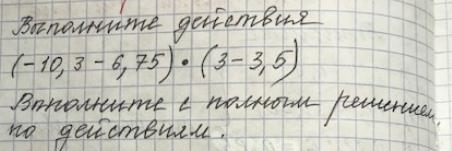 Выполните действия
(-10,3 - 6,75) • (3 - 3,5)
Выполните с полным решением,
по действиям.